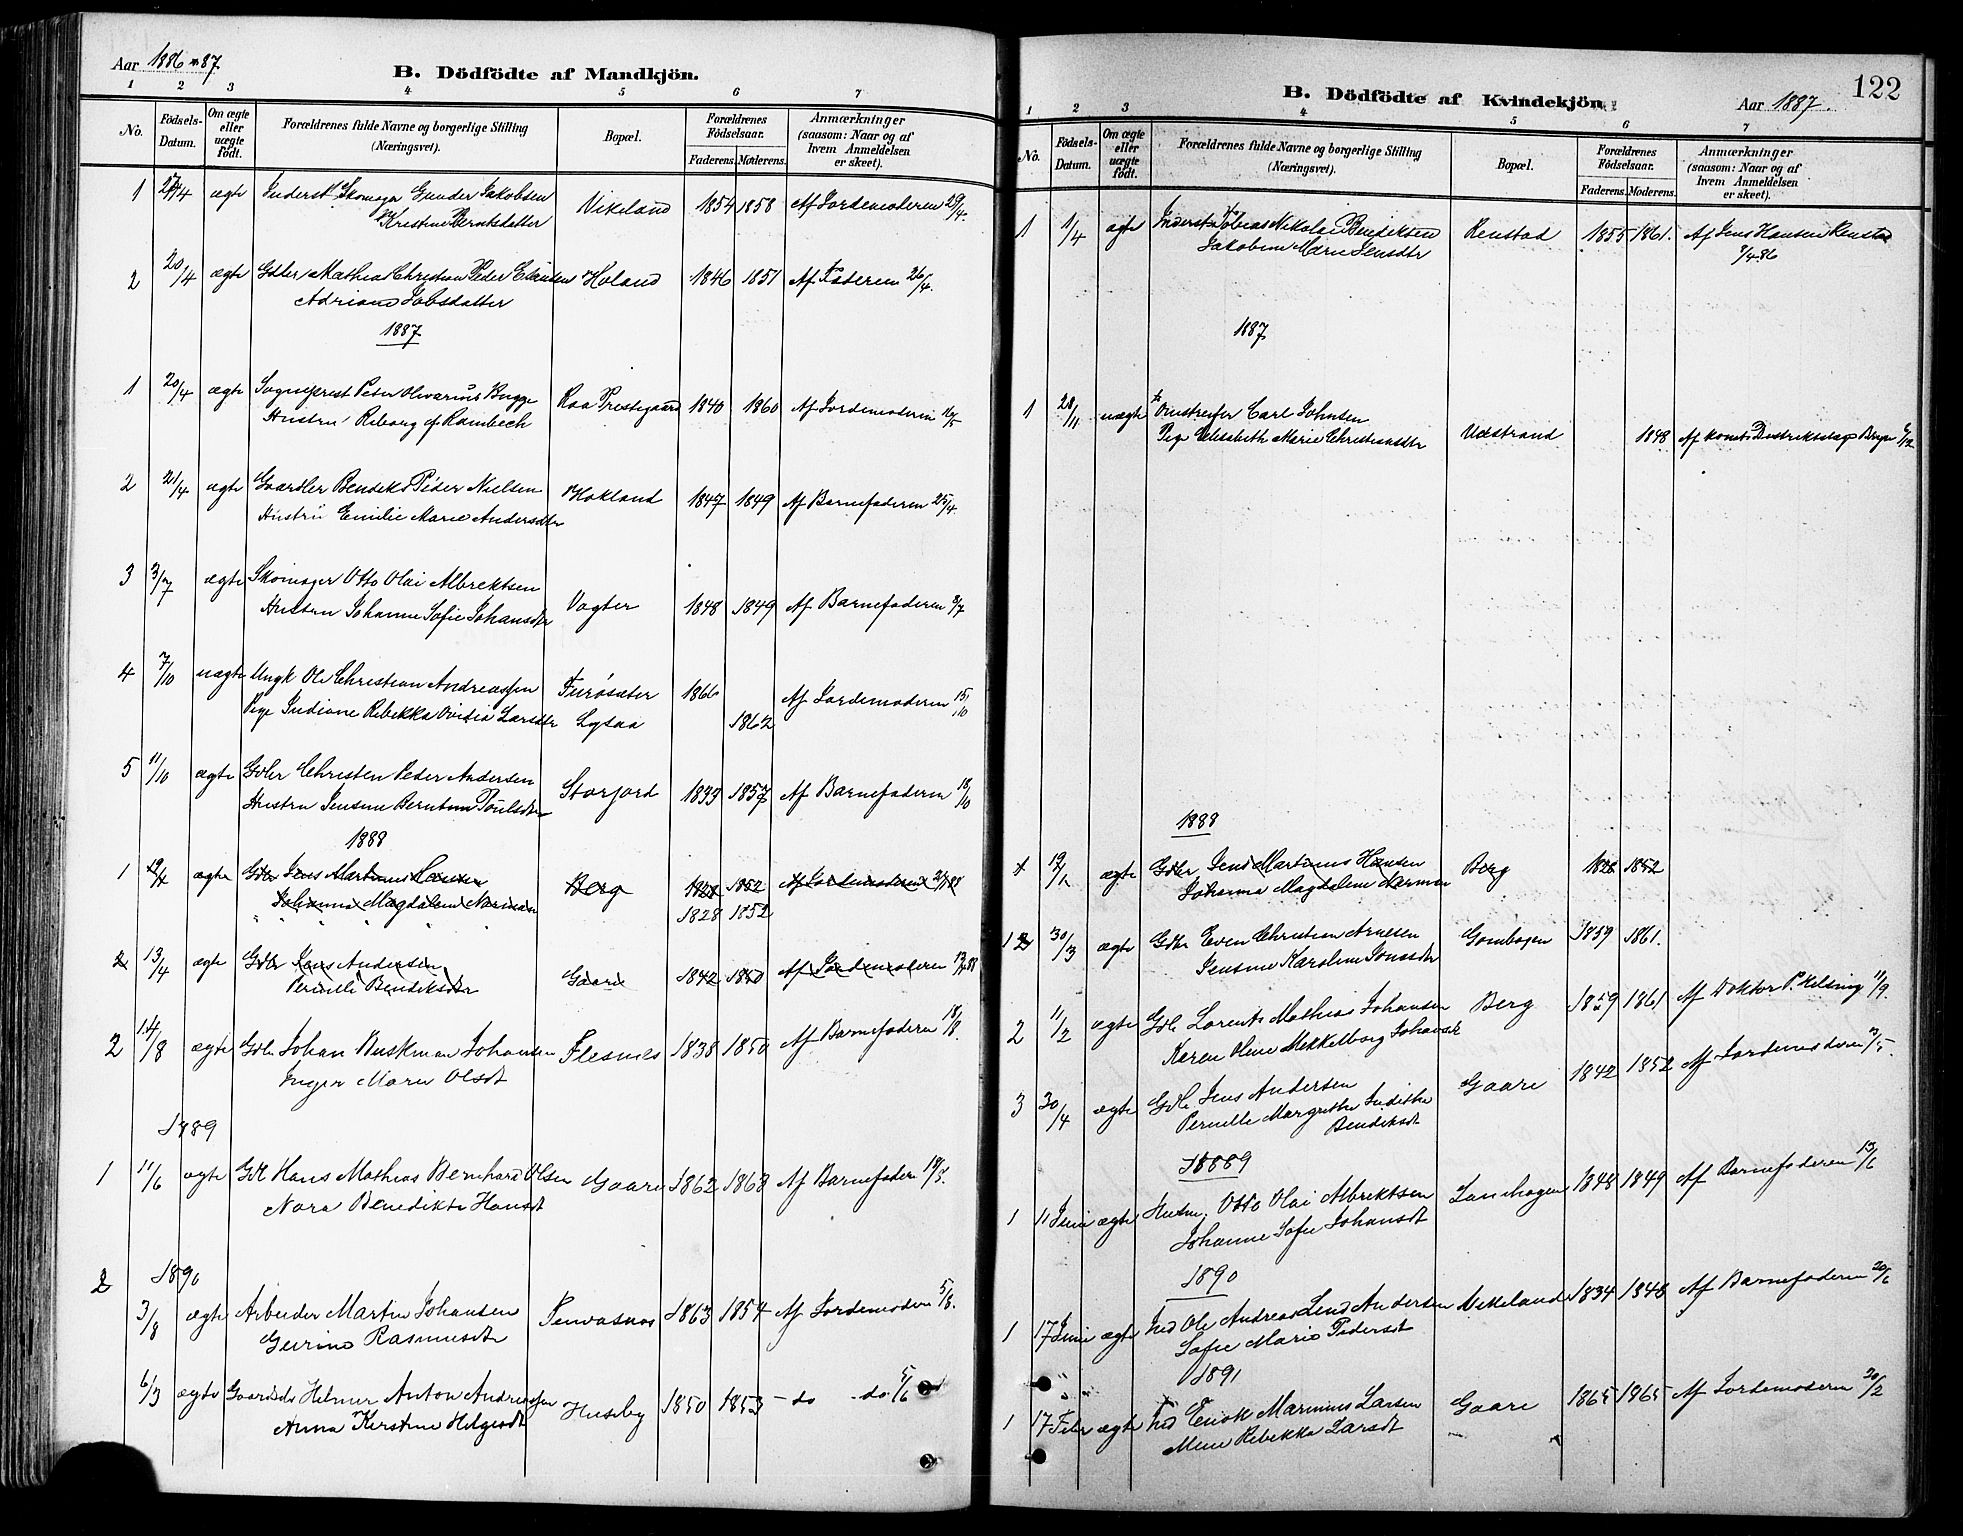 Aar 1886 87.
B. Dödfödte af Mandkjön.
1 2 3 4 5 6 7
No.
Födsels-Datum.
Om ægte eller uægte födt.
Forældrenes fulde Navne og borgerlige Stilling
(Næringsvei).
Bopæl.
Forældrenes Födselsaar.
Faderens. Moderens.
Anmærkninger
(saasom: Naar og af
hvem Anmeldelsen
er skeet).
1 ægte Inderst Skomager Gunder Jakobsen Vikeland 1854 1858 Af Jordemoderen 29/4.
Kristine Berntsdatter
2 20/4 ægte Mathias Christian Peder Holand 1846 1851 Af Faderen 26/4.
Adriana Jobsdatter
1887
1 20/4 ægte Sogneprest Peter Olivarius Bugge Roa Prestegaard 1840 1860 Af Jordemoderen 16/5
Hustru Riborg af Rambech
2 21/4 ægte Gaardbr Bendiks Peder Nielsen Hokland 1847 1849 Af Barnefaderen 25/4.
Hustru Emilie Marie Andersdtr
3 3/7 ægte Skomager Otto Olai Albrektsen Vagter 1848 1849 Af Barnefaderen 8/7
Hustru Johanne Sofie Johansdtr
4 7/10 uægte Ungk Ole Christian Andreassen 1866 Af Jordemoderen 15/10
Pige Indiane Rebekka Ovidia Larsdtr Lysaa 1862
5 11/10 ægte Gdbr Christen Peder Andersen Storjord 1833 1857 Af Barnefaderen 18/10
Hustru Jensine Berntine Poulsdtr
1888
1 ægte Gdbr Jens Martinus Hansen Berg 1828 1852 Af Jordemoderen
Johanna Magdalena Norman 1828 1852
2 13/4 ægte Gdbr Jens Andersen Gaare 1842 1850 Af Jordemoderen
Pernille Bendiksdtr
2 14/8 ægte Gdb. Johan Buskman Johansen Flesnes 1838 1850 Af Barnefaderen 18/8.
Inger Marie Olsdt
1889
1 11/6 ægte Gdb Hans Mathias Bernhard Olsen Gaare 1862 1868 Af Barnefaderen
Nora Benedikte Hansdt
1890
2 3/8 ægte Arbeider Martin Johansen 1863 1854 Af Jordemoderen 5/8.
Gurine Rasmusdtr
6/3 ægte Helmer Anton Andreassen Huseby 1850 1853 - do - do
Anna Kirstine Helgesdt
122
B. Dödfödte af Kvindekjön.
Aar 1887.
1 2 3 4 5 6 7
No.
Födsels-Datum.
Om ægte eller uægte födt.
Forældrenes fulde Navne og borgerlige Stilling
(Næringsvei).
Bopæl.
Forældrenes Födselsaar.
Faderens. Moderens.
Anmærkninger
(saasom: Naar og af
hvem Anmeldelsen
er skeet).
1 1/4 ægte Inderst Tobias Nikolai Bendiksen Renstad 1855 1861. Af Jens Hansen Renstad
Jakobine Marie Jensdtr
1887
1 28/11 uægte Carl Johnsen
Pige Elisabeth Marie Christiansdtr 1848 Af konst. Distriktslæge
1888
1 19/1 ægte Gdbr Jens Martinus Hansen Berg 1828 1852
Johanna Magdalene Norman
1 2 30/3 ægte Gdbr Even Christian Arnesen 1859 1861.
Jensine Karoline Jonsdtr
2 11/2 ægte Gdb. Lorents Mathias Johansen Berg 1859 1861 Af Doktor P. Kelsing 11/9.
Karen Oline Mekkelborg Johansdt
3 30/4 ægte Gdb. Jens Andersen Gaare 1842 1852 Af Jordemoderen
Pernelle Margrethe Judithe
Bendiksdt
18889
1 11 Juni ægte Husm. Otto Olai Albrektsen 1848 1849 Af Barnefaderen 13/6
Johanne Sofie Johansdt
1890
1 17 Juni ægte Ole Andreas Lind Andersen Vikeland 1834 1848 Af Barnefaderen 20/6
Sofie Marie Pedersdt
1891
1 17 Febr ægte Enok Marinius Larsen Gaare 1865 1865 Af Jordemoderen 20/2
Mine Rebekka Larsdt